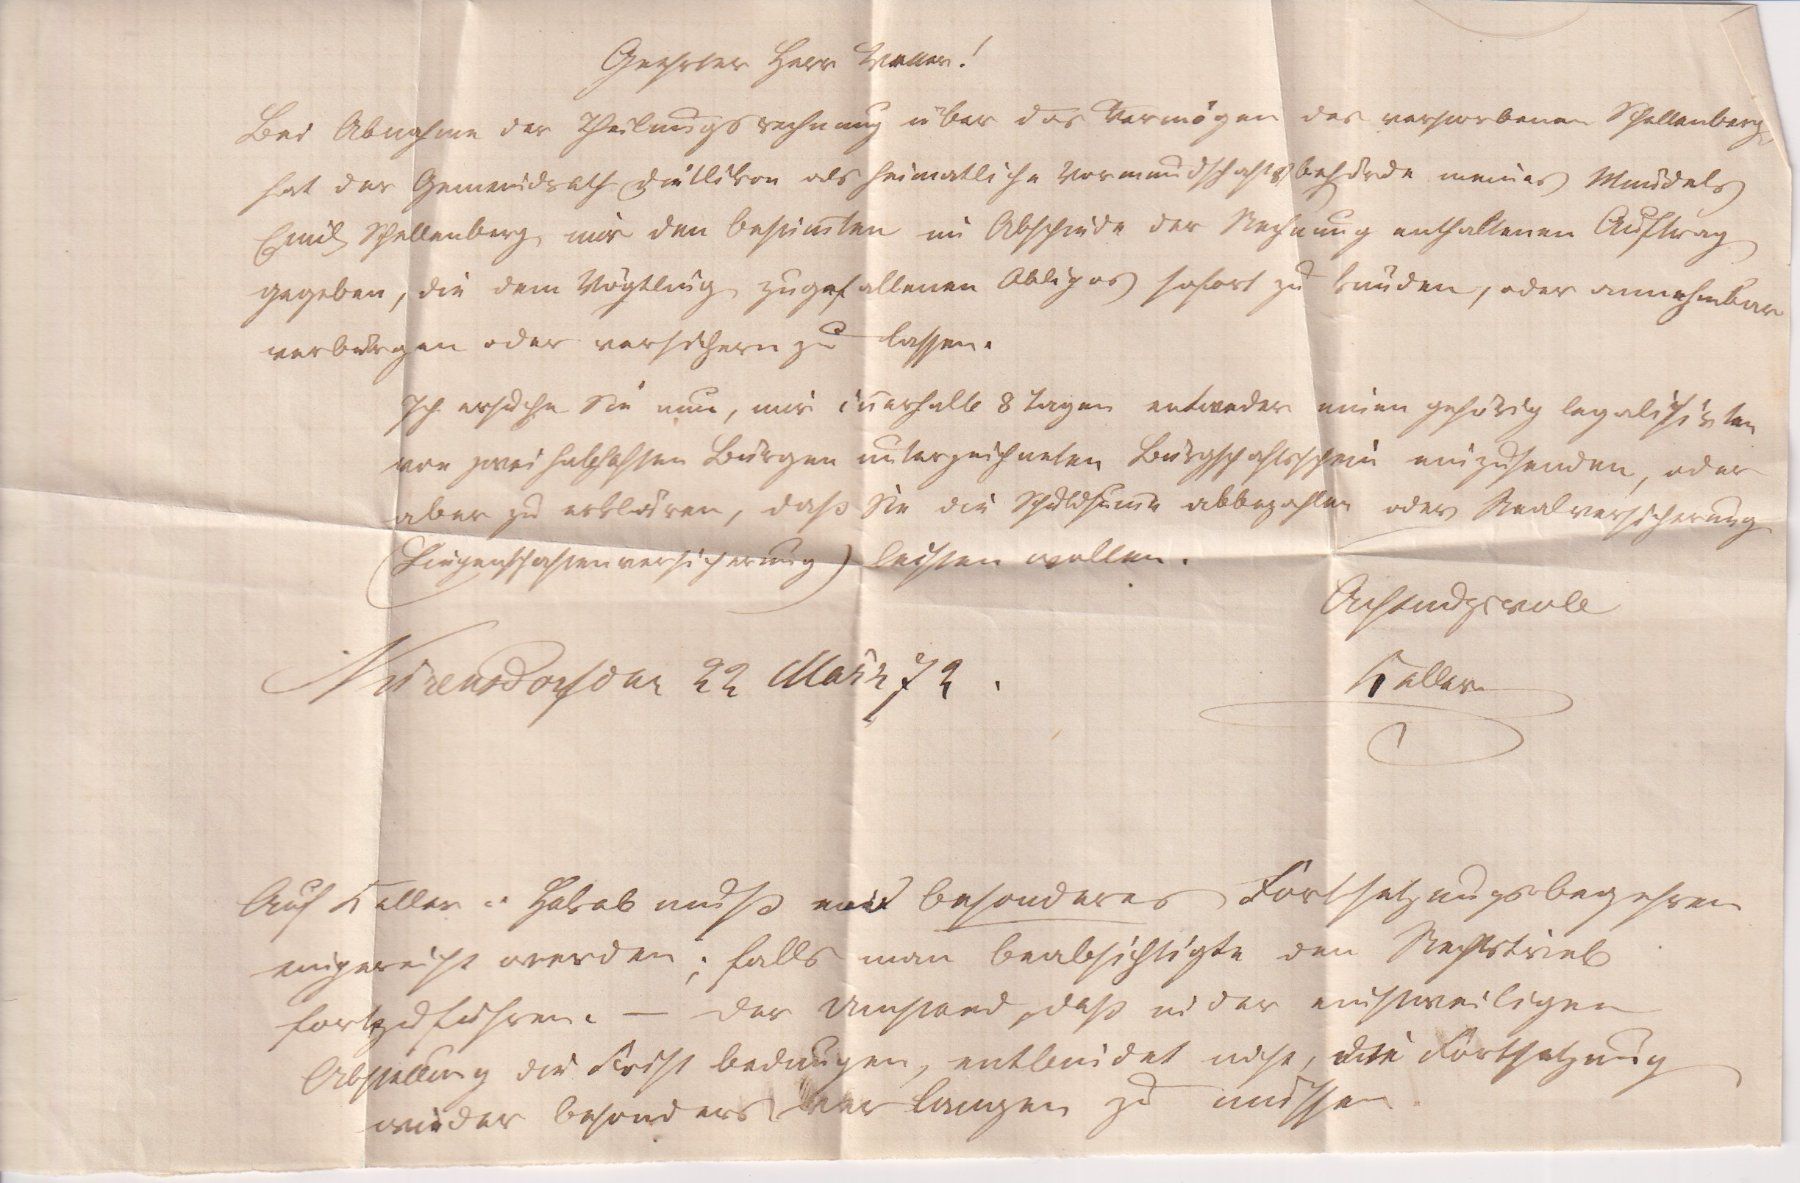 Geehrter Herr
Bei Abnahme der Theilungsrechnung über das Vermögen des verstorbenen Schellenberg
hat der Gemeindrath Dietlikon als heimatliche Vormundschaftsbehörde meines Mündels
Emil Schellenberg mir den bestimten im Abschiede der Rechnung enthaltenen Auftrag
gegeben, die dem Vögtling zugefallenen Obligos sofort zu künden, oder annehmbar
verbürgen oder versichern zu lassen.
Ich ersuche Sie nun, mir inerhalb 8 Tagen entweder einen gehörig legalisirten
von zwei habhaften Bürgen unterzeichneten Bürgschaftsschein einzusenden, oder
aber zu erklären, daß Sie die Schuldsume abbezahlen oder Realversicherung
(Liegenschaftenversicherung) leisten wollen.
Achtungsvoll
Nürensdorf den 22 März 72.
Keller
Auf Keller muß ein besonderes Fortsetzungsbegehren
eingereicht werden; falls man beabsichtigte den Rechtstrieb
fortzuführen. — Der Umstand, daß in der einstweiligen
Abstellung die Frist bedungen, entbindet nicht, die Fortsetzung
wieder besonders verlangen zu müssen